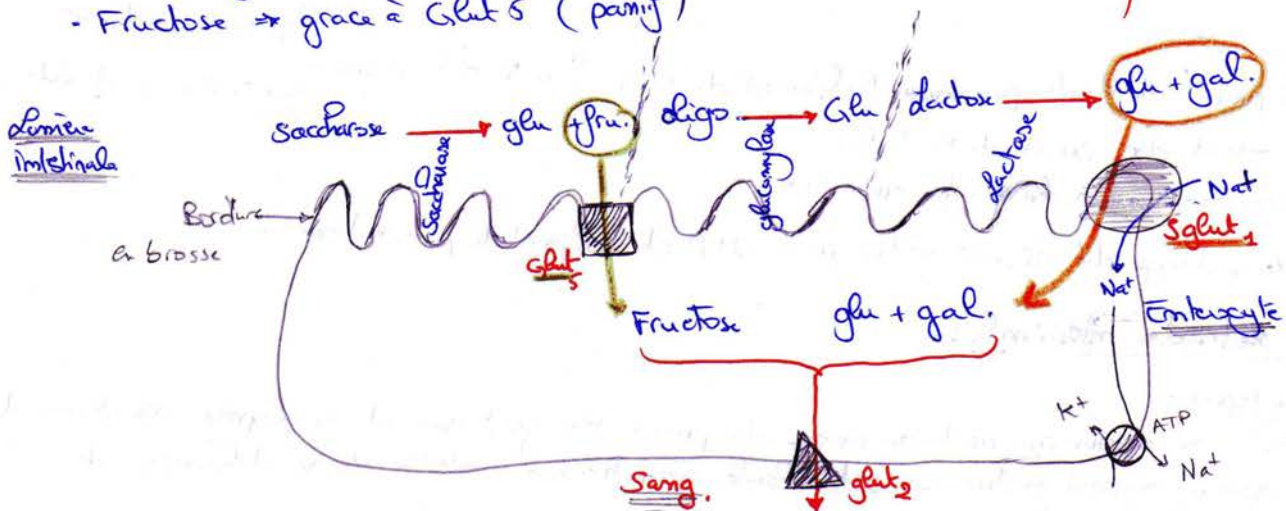 - Fructose ⇒ grace à Glut 5 (passif)
Lumière intestinale
saccharose → glu + fru.
oligo. → Glu
Lactose → glu + gal.
saccharase
glucoamylase
Lactase
Bordure en brosse
Glut5
Na+
Sglut1
Na+
Fructose
glu + gal.
Enterocyte
K+
ATP
Na+
Sang.
glut2